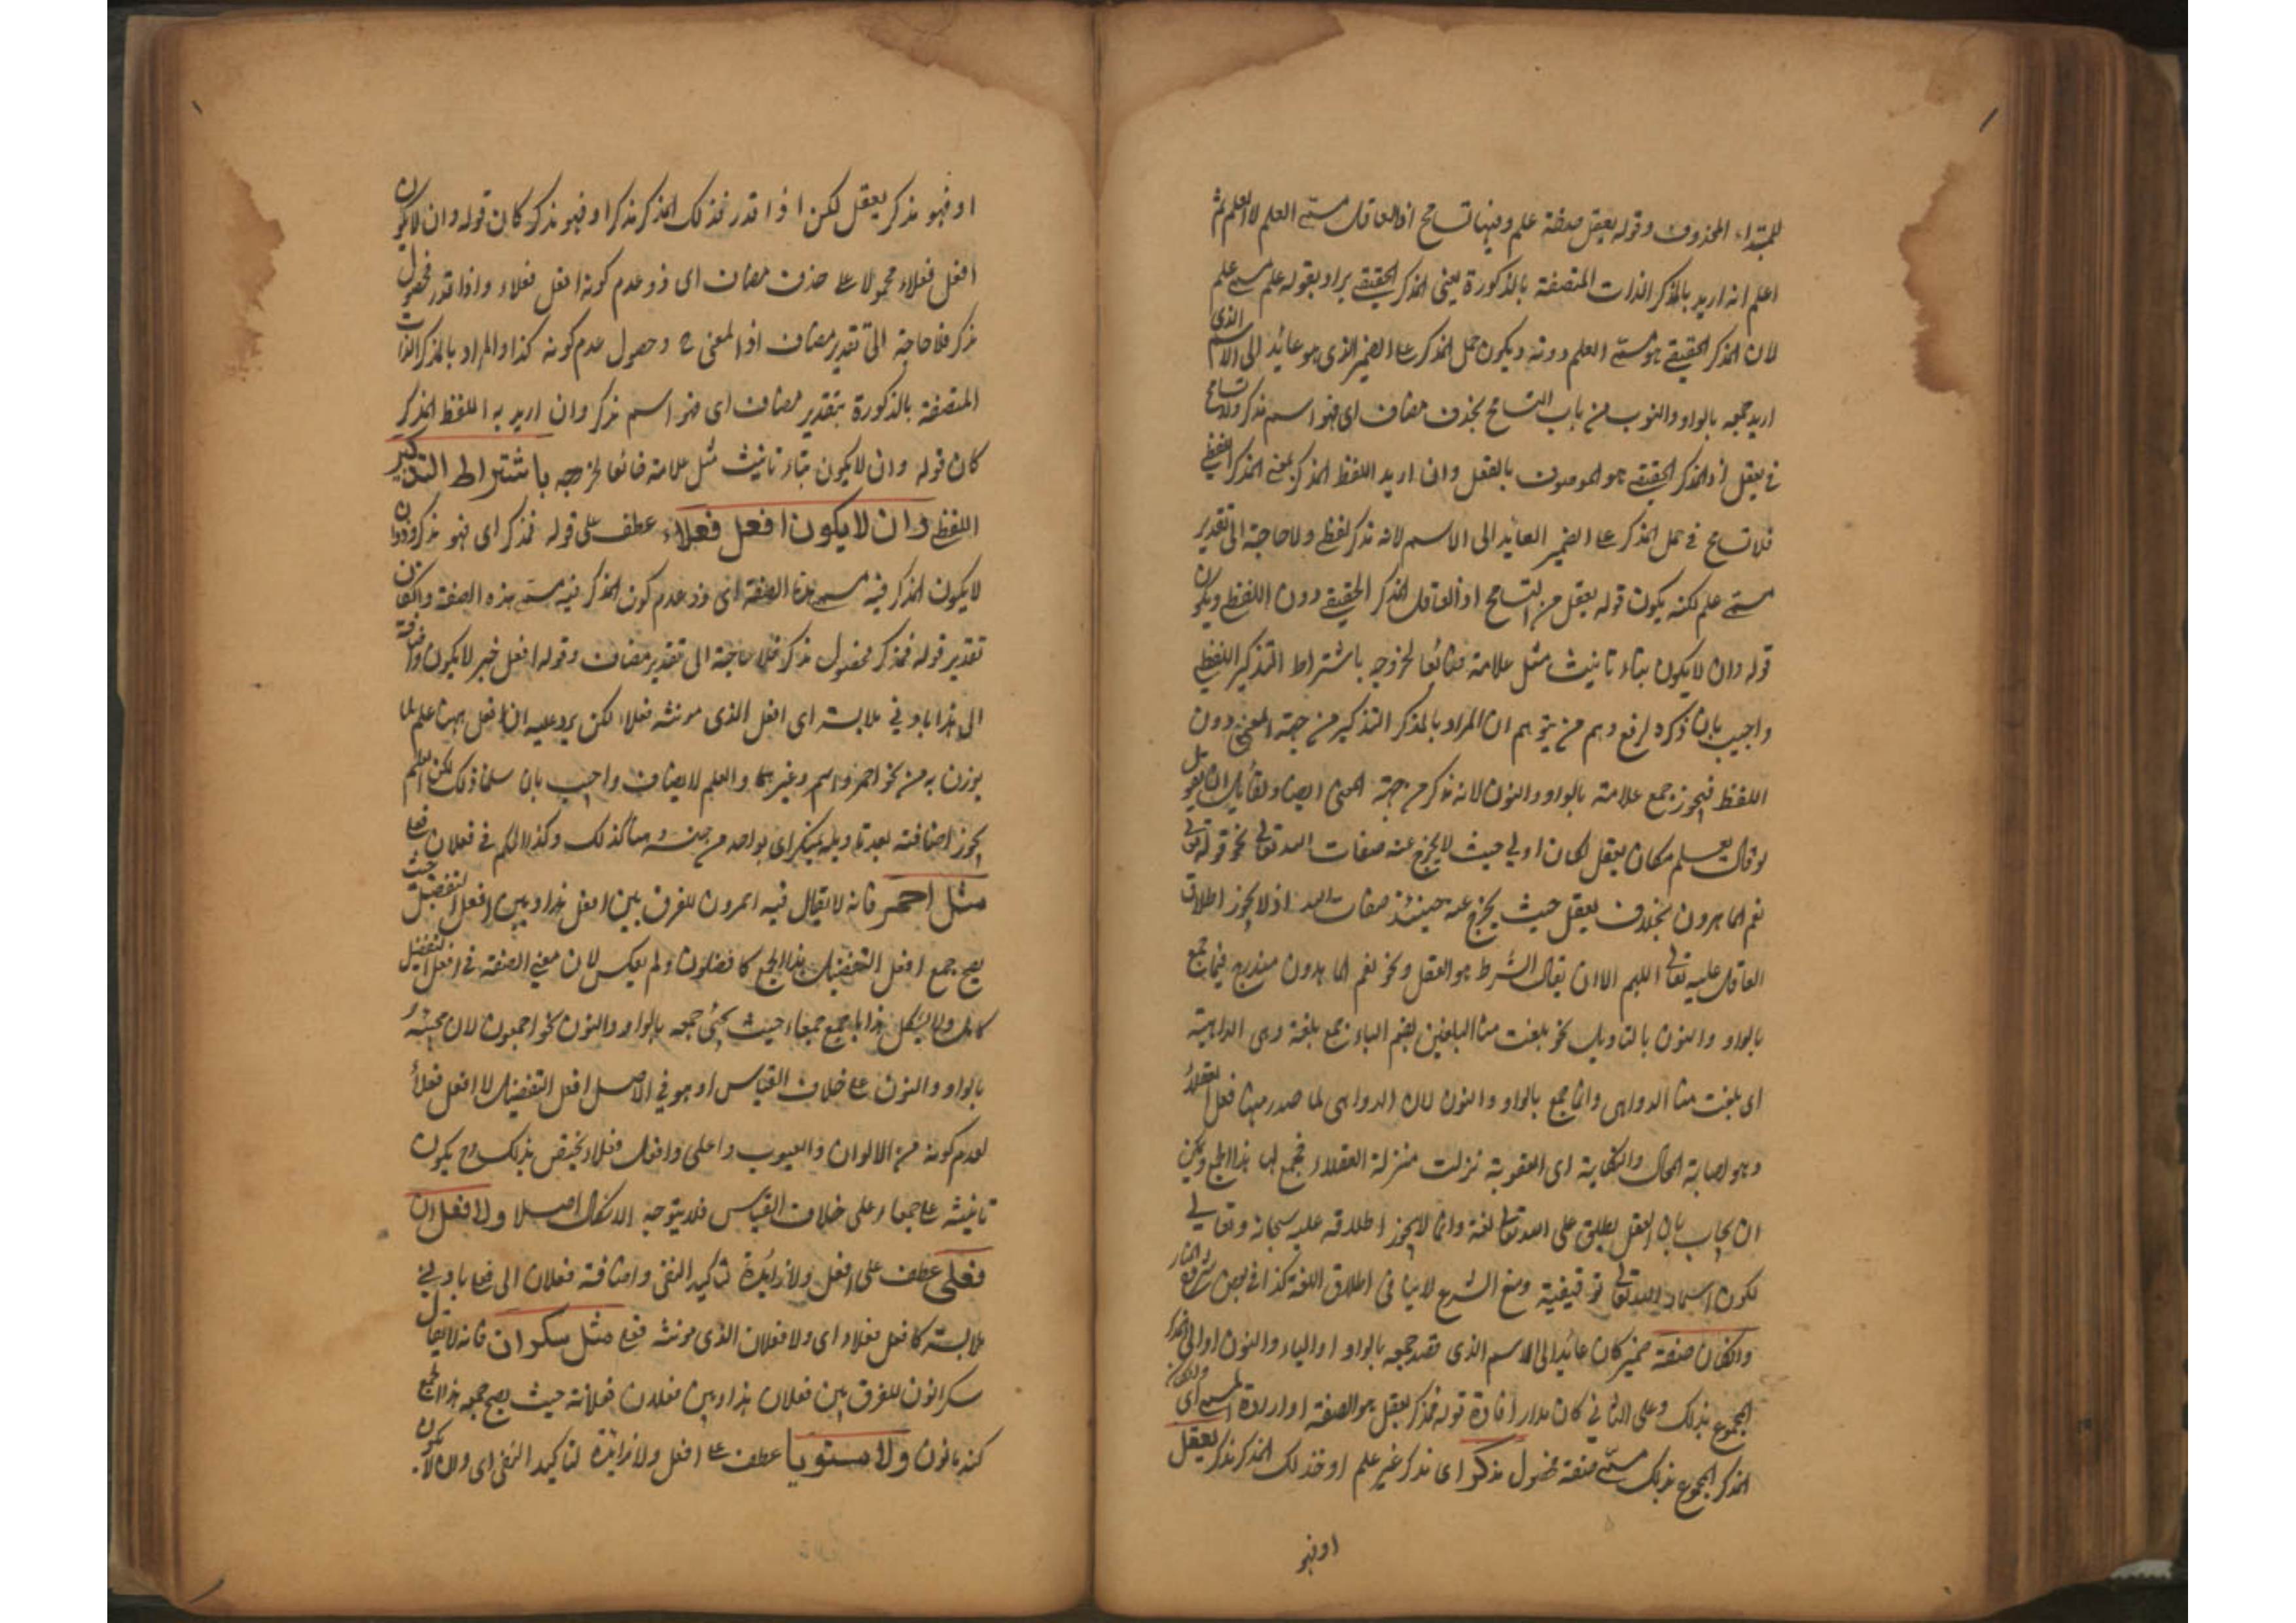 للمبتداء المحذوف وقوله يعقل صفة علم وفيها تسامح اذ العاقل مسمى العلم لا العلم ثم
اعلم انه اريد بالمذكر الذات المتصفة بالذكورة يعنى المذكر الحقيقى يراد بقوله علم مسمى علم
لان المذكر الحقيقى هو مسمى العلم دونه ويكون حمل المذكر على الضمير الذى هو عائد الى الاسم الذى
اريد جمعه بالواو والنون من باب التسامح بحذف مضاف اى فهو اسم مذكر ولا تسامح
فى يعقل اذ المذكر الحقيقى هو الموصوف بالعقل وان اريد اللفظ المذكر بمعنى المذكر اللفظى
فلا تسامح فى حمل المذكر على الضمير العايد الى الاسم لانه مذكر لفظى ولا حاجة الى تقدير
مسمى علم لكنه يكون قوله يعقل من التسامح اذ العاقل المذكر الحقيقى دون اللفظى ويكون
قوله وان لا يكون بتاء تانيث مثل علامة ضائعا لخروجه باشتراط التذكير اللفظى
واجيب بان ذكره لرفع وهم من يتوهم ان المراد بالمذكر التذكير من جهة المعنى دون
اللفظ فيجوز جمع علامة بالواو والنون لانه مذكر من جهة المعنى ايضا ولقائل ان يقول
لو قال يعلم مكان يعقل لكان اولى حيث لا يخرج عنه صفات الله تعالى نحو قوله تعالى
نعم الماهدون بخلاف يعقل حيث يخرج عنه حينئذ صفات الله اذ لا يجوز اطلاق
العاقل عليه تعالى اللهم الا ان يقال الشرط هو العقل ونحو نعم الماهدون مندرج فيما جمع
بالواو والنون بالتاويل نحو بلغت منا البلغين بضم الباء جمع بلغة وهى الداهية
اى بلغت منا الدواهى وانما جمع بالواو والنون لان الدواهى لما صدر منها فعل العقلاء
وهو اصابة الحال والنكاية اى العقوبة نزلت منزلة العقلاء فجمع لها هذا الجمع ويمكن
ان يجاب بان العقل يطلق على الله تعالى لغة وانما لا يجوز اطلاقه عليه سبحانه وتعالى
لكون اسماء الله تعالى توقيفية ومنع الشرع لا ينافى اطلاق اللغة كذا فى بعض شروح
وان كان صفة ضمير كان عائد الى الاسم الذى قصد جمعه بالواو او الياء والنون او الى المذكر
المجموع بذلك وعلى الثانى كان مدار افادة قوله فمذكر يعقل هو الصفة او ارادة المسمى اى
المذكر المجموع بذلك مسمى صفة فحصول مذكر اى مذكر غير علم او فذلك المذكر مذكر يعقل
او فهو
او فهو مذكر يعقل لكن اذا قدر فذلك المذكر مذكر او فهو مذكر كان قوله وان لا يكون
افعل فعلاء محمولا على حذف مضاف اى ذو عدم كونه افعل فعلاء واذا قدر فحصول
مذكر فلا حاجة الى تقدير مضاف اذ المعنى ح وحصول عدم كونه كذا والمراد بالمذكر الذات
المتصفة بالذكورة بتقدير مضاف اى فهو اسم مذكر وان اريد به اللفظ المذكر
كان قوله وان لا يكون بتاء تانيث مثل علامة ضائعا لخروجه باشتراط التذكير
اللفظى وان لا يكون افعل فعلاء عطف على قوله فمذكر اى فهو مذكر وذو ان
لا يكون المذكر فيه مسمى هذه الصفة اى ذو عدم كون المذكر فيه مسمى هذه الصفة وان كان
تقدير قوله فمذكر فحصول مذكر فلا حاجة الى تقدير مضاف وقوله افعل خبر لا يكون واضافته
الى هذا بادنى ملابسة اى افعل الذى مونثه فعلاء لكن يرد عليه ان افعل ههنا علم لما
يوزن به من نحو احمر واسم وغيرهما والعلم لا يضاف واجيب بان سلمنا ذلك لكن العلم
يجوز اضافته بعد تاويله بمنكر اى بواحد من جنسه وهنا كذلك وكذا الحكم فى فعلان فعلى
مثل احمر فانه لا يقال فيه احمرون للفرق بين افعل هذا وبين افعل التفضيل حيث
يصح جمع افعل التفضيل هذا الجمع كافضلون ولم يعكس لان معنى الصفة فى افعل التفضيل
كامل ولا يشكل هذا باجمع جمعاء حيث يجئ جمعه بالواو والنون نحو اجمعون لان مجيئه
بالواو والنون على خلاف القياس او هو فى الاصل افعل التفضيل لا افعل فعلاء
لعدم كونه من الالوان والعيوب واحلى وافعل فعلاء يختص بذلك وح يكون
تانيثه على جمعاء على خلاف القياس فلا يتوجه الاشكال اصلا ولا فعلان
فعلى عطف على افعل ولا زايدة لتاكيد النفى واضافة فعلان الى فعلى بادنى
ملابسة كافعل فعلاء اى ولا فعلان الذى مونثه فعلى مثل سكران فانه لا يقال
سكرانون للفرق بين فعلان هذا وبين فعلان فعلانة حيث يصح جمعه هذا الجمع
كندمانون ولا مستويا عطف على افعل ولا زايدة لتاكيد النفى اى وان لا يكون